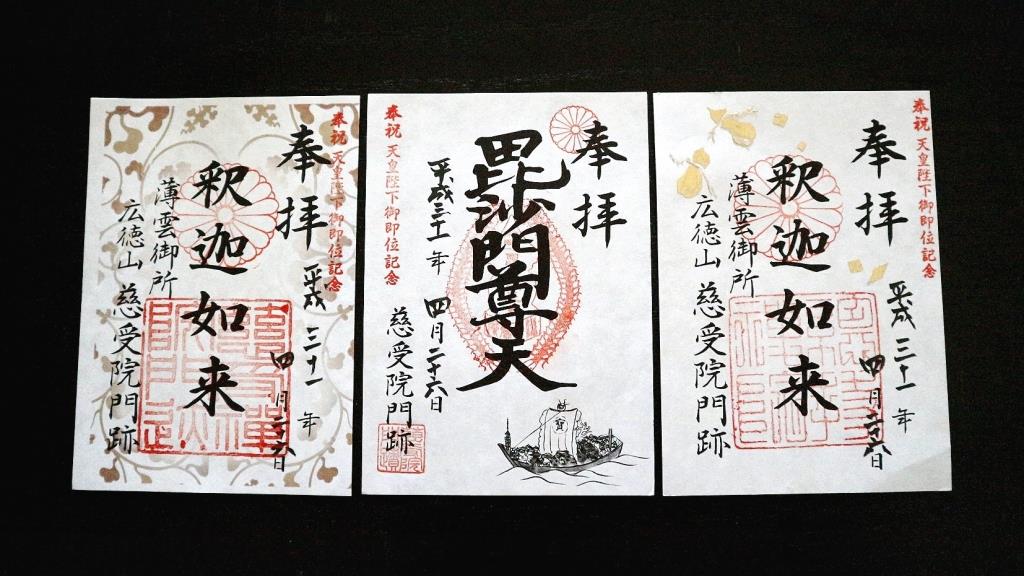 奉祝 天皇陛下御即位記念
奉拝
平成三十一年
四月二十六日
釈迦如来
薄雲御所
広徳山 慈受院門跡
奉拝
毘沙門尊天
平成三十一年
四月二十六日
奉祝 天皇陛下御即位記念
慈受院門跡
寳
奉祝 天皇陛下御即位記念
奉拝
平成三十一年
四月二十六日
釈迦如来
薄雲御所
広徳山 慈受院門跡